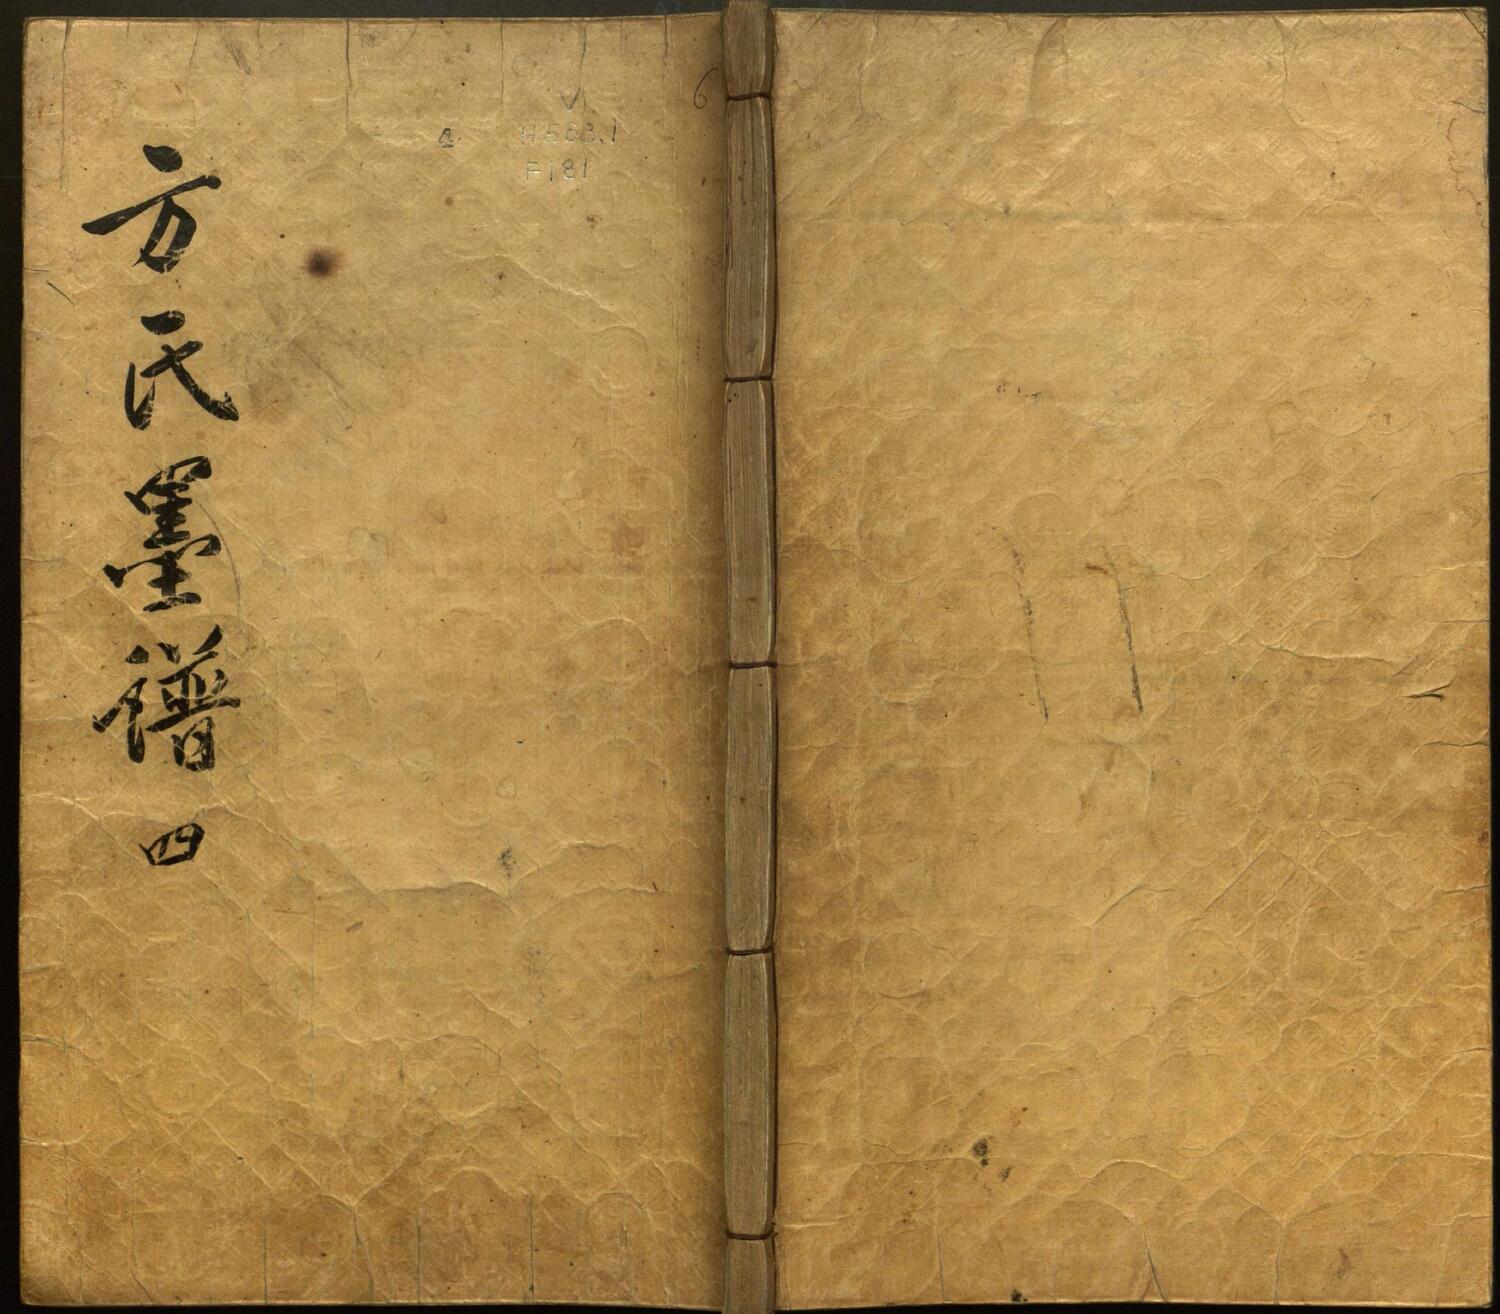 方氏墨譜 四
6
V
4 H563.1
F181